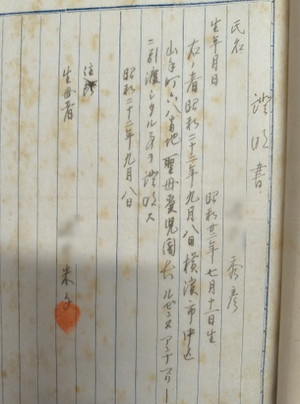 證明書
氏名 秀彦
生年月日 昭和廿二年七月十一日生
右ノ者昭和二十二年九月八日橫濱市中区
山手町六八番地聖母愛児園長ルゼンヌアンナマリー
ニ引渡シタル事ヲ證明ス
昭和二十二年九月八日
住所
生母者